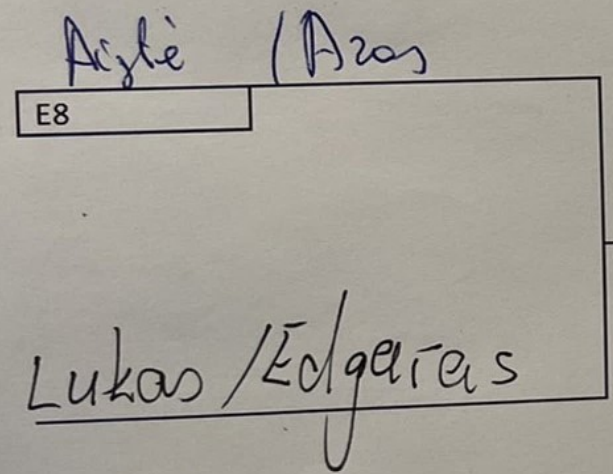 Aistė / Azas
E8
Lukas / Edgaras